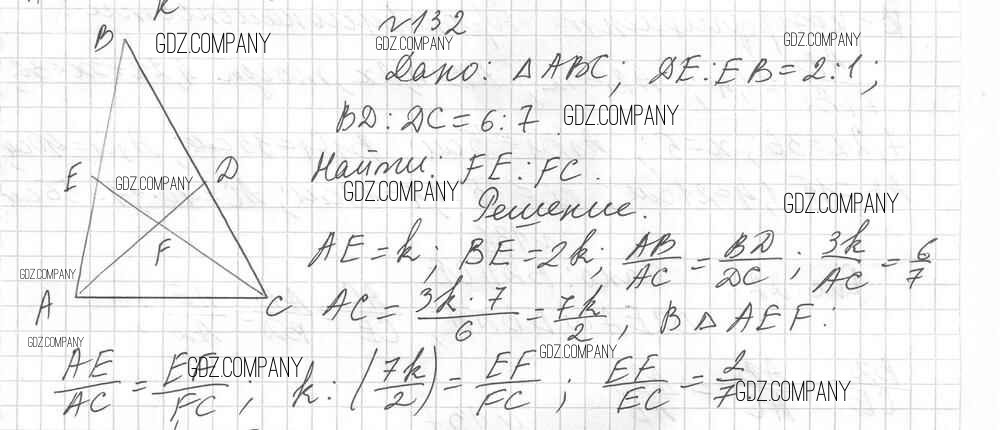 к
№132
B
GDZ.COMPANY
GDZ.COMPANY
GDZ.COMPANY
Дано: △ABC; DE:EB=2:1;
BD:DC=6:7
GDZ.COMPANY
Найти: FE:FC.
E
GDZ.COMPANY
D
GDZ.COMPANY
GDZ.COMPANY
Решение.
F
AE=k; BE=2k; AB/AC = BD/DC; 3k/AC = 6/7
GDZ.COMPANY
A
C
AC = 3k·7/6 = 7k/2; В △AEF:
GDZ.COMPANY
GDZ.COMPANY
GDZ.COMPANY
AE/AC = EF/FC; k:(7k/2) = EF/FC; EF/EC = 2/7
GDZ.COMPANY